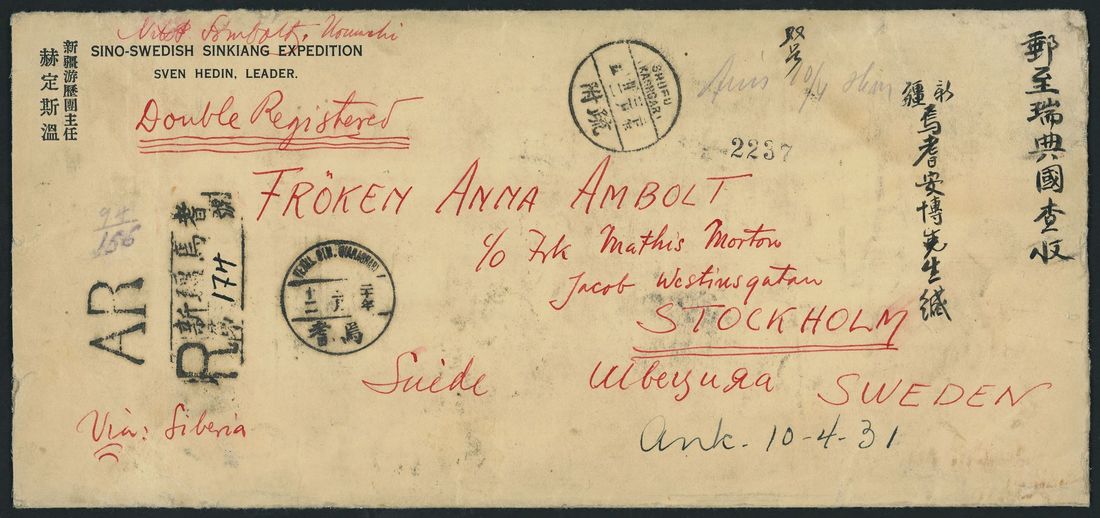 SINO-SWEDISH SINKIANG EXPEDITION
SVEN HEDIN, LEADER.
新疆游歷團主任
赫定斯溫
Double Registered
SHUFU
KASHGAR
附疏
双号
2237
郵至瑞典國查收
新疆焉耆安博先生緘
FRÖKEN ANNA AMBOLT
c/o Frk Mathis Morton
Jacob Westinsgatan
STOCKHOLM
Suède
SWEDEN
94
156
AR
R
新疆焉耆
174
二十年
焉耆
Via: Siberia
Ank. 10-4-31